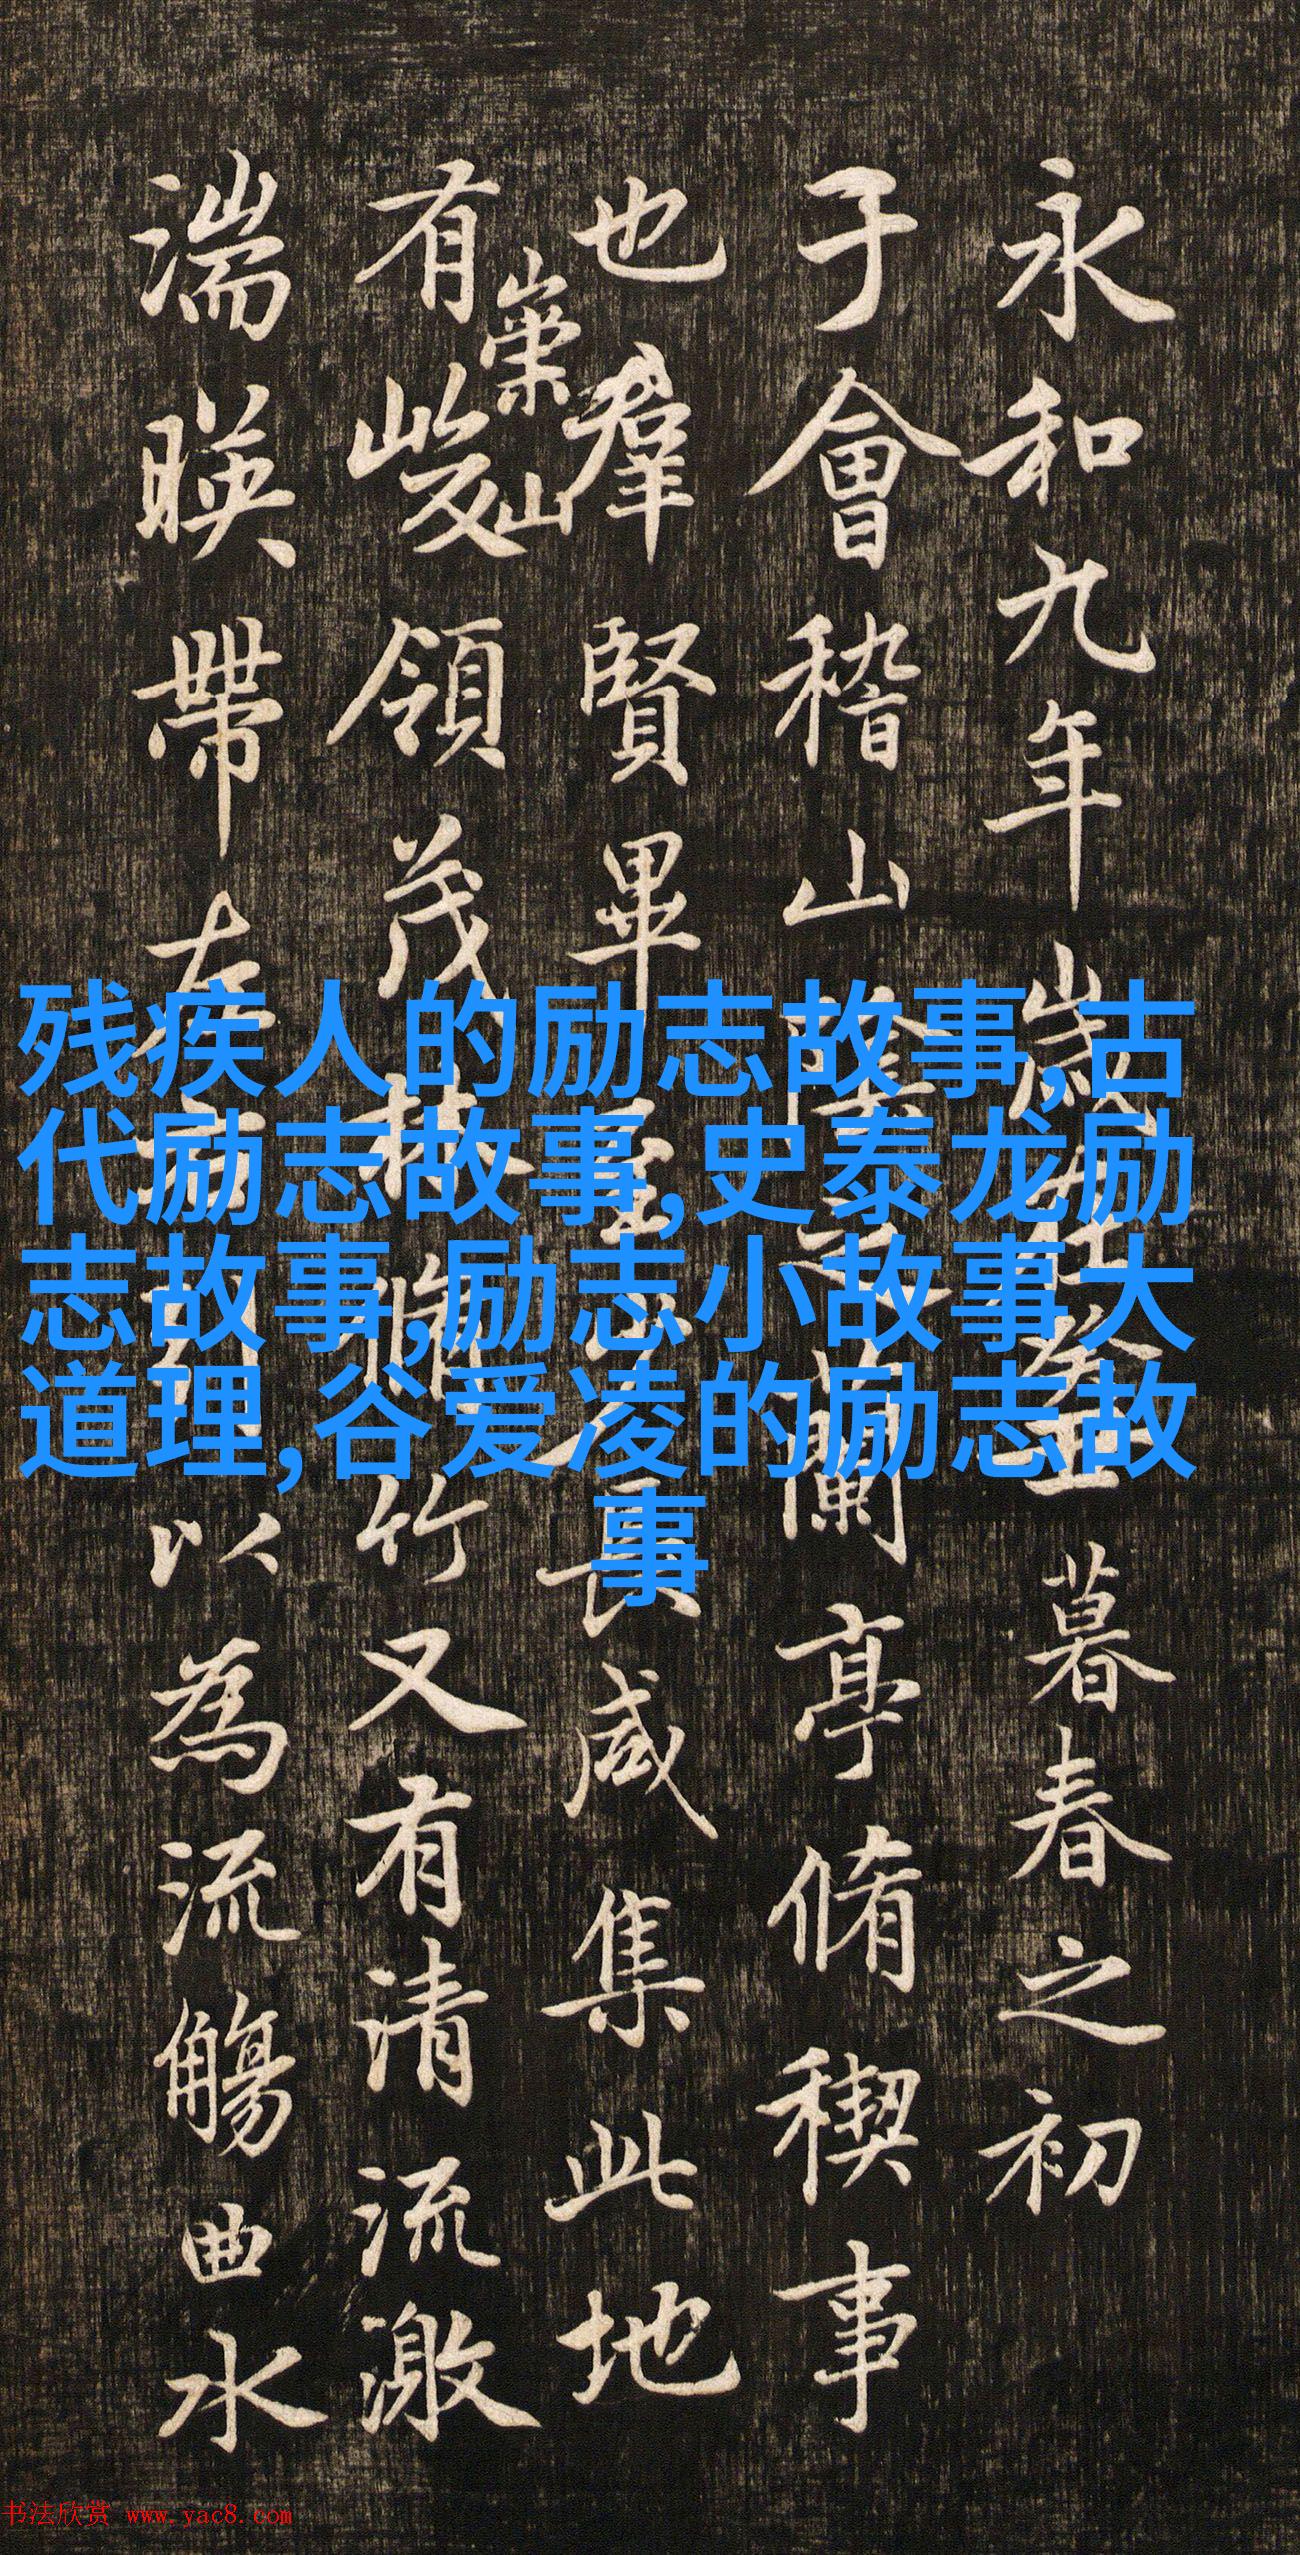 永和九年歲在癸丑暮春之初
于會稽山陰之蘭亭脩稧事
也羣賢畢至少長咸集此地
有崇山峻領茂林脩竹又有清流激
湍暎帶左右引以為流觴曲水
残疾人的励志故事,古
代励志故事,史泰龙励
志故事,励志小故事大
道理,谷爱凌的励志故
事
书法欣赏 www.yac8.com